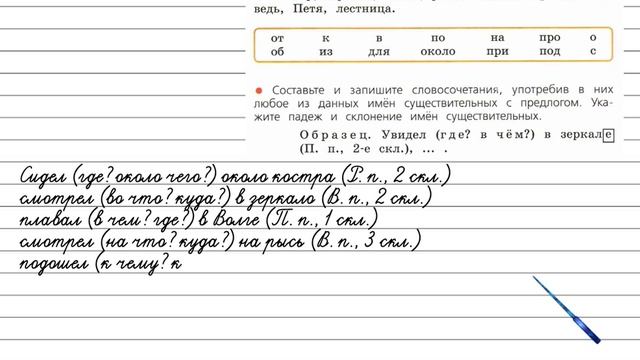 ведь, Петя, лестница.
от к в по на про о
об из для около при под с
● Составьте и запишите словосочетания, употребив в них
любое из данных имён существительных с предлогом. Ука-
жите падеж и склонение имён существительных.
Образец. Увидел (где? в чём?) в зеркале
(П. п., 2-е скл.), ... .
Сидел (где? около чего?) около костра (Р. п., 2 скл.)
смотрел (во что? куда?) в зеркало (В. п., 2 скл.)
плавал (в чем? где?) в Волге (П. п., 1 скл.)
смотрел (на что? куда?) на рысь (В. п., 3 скл.)
подошел (к чему? к